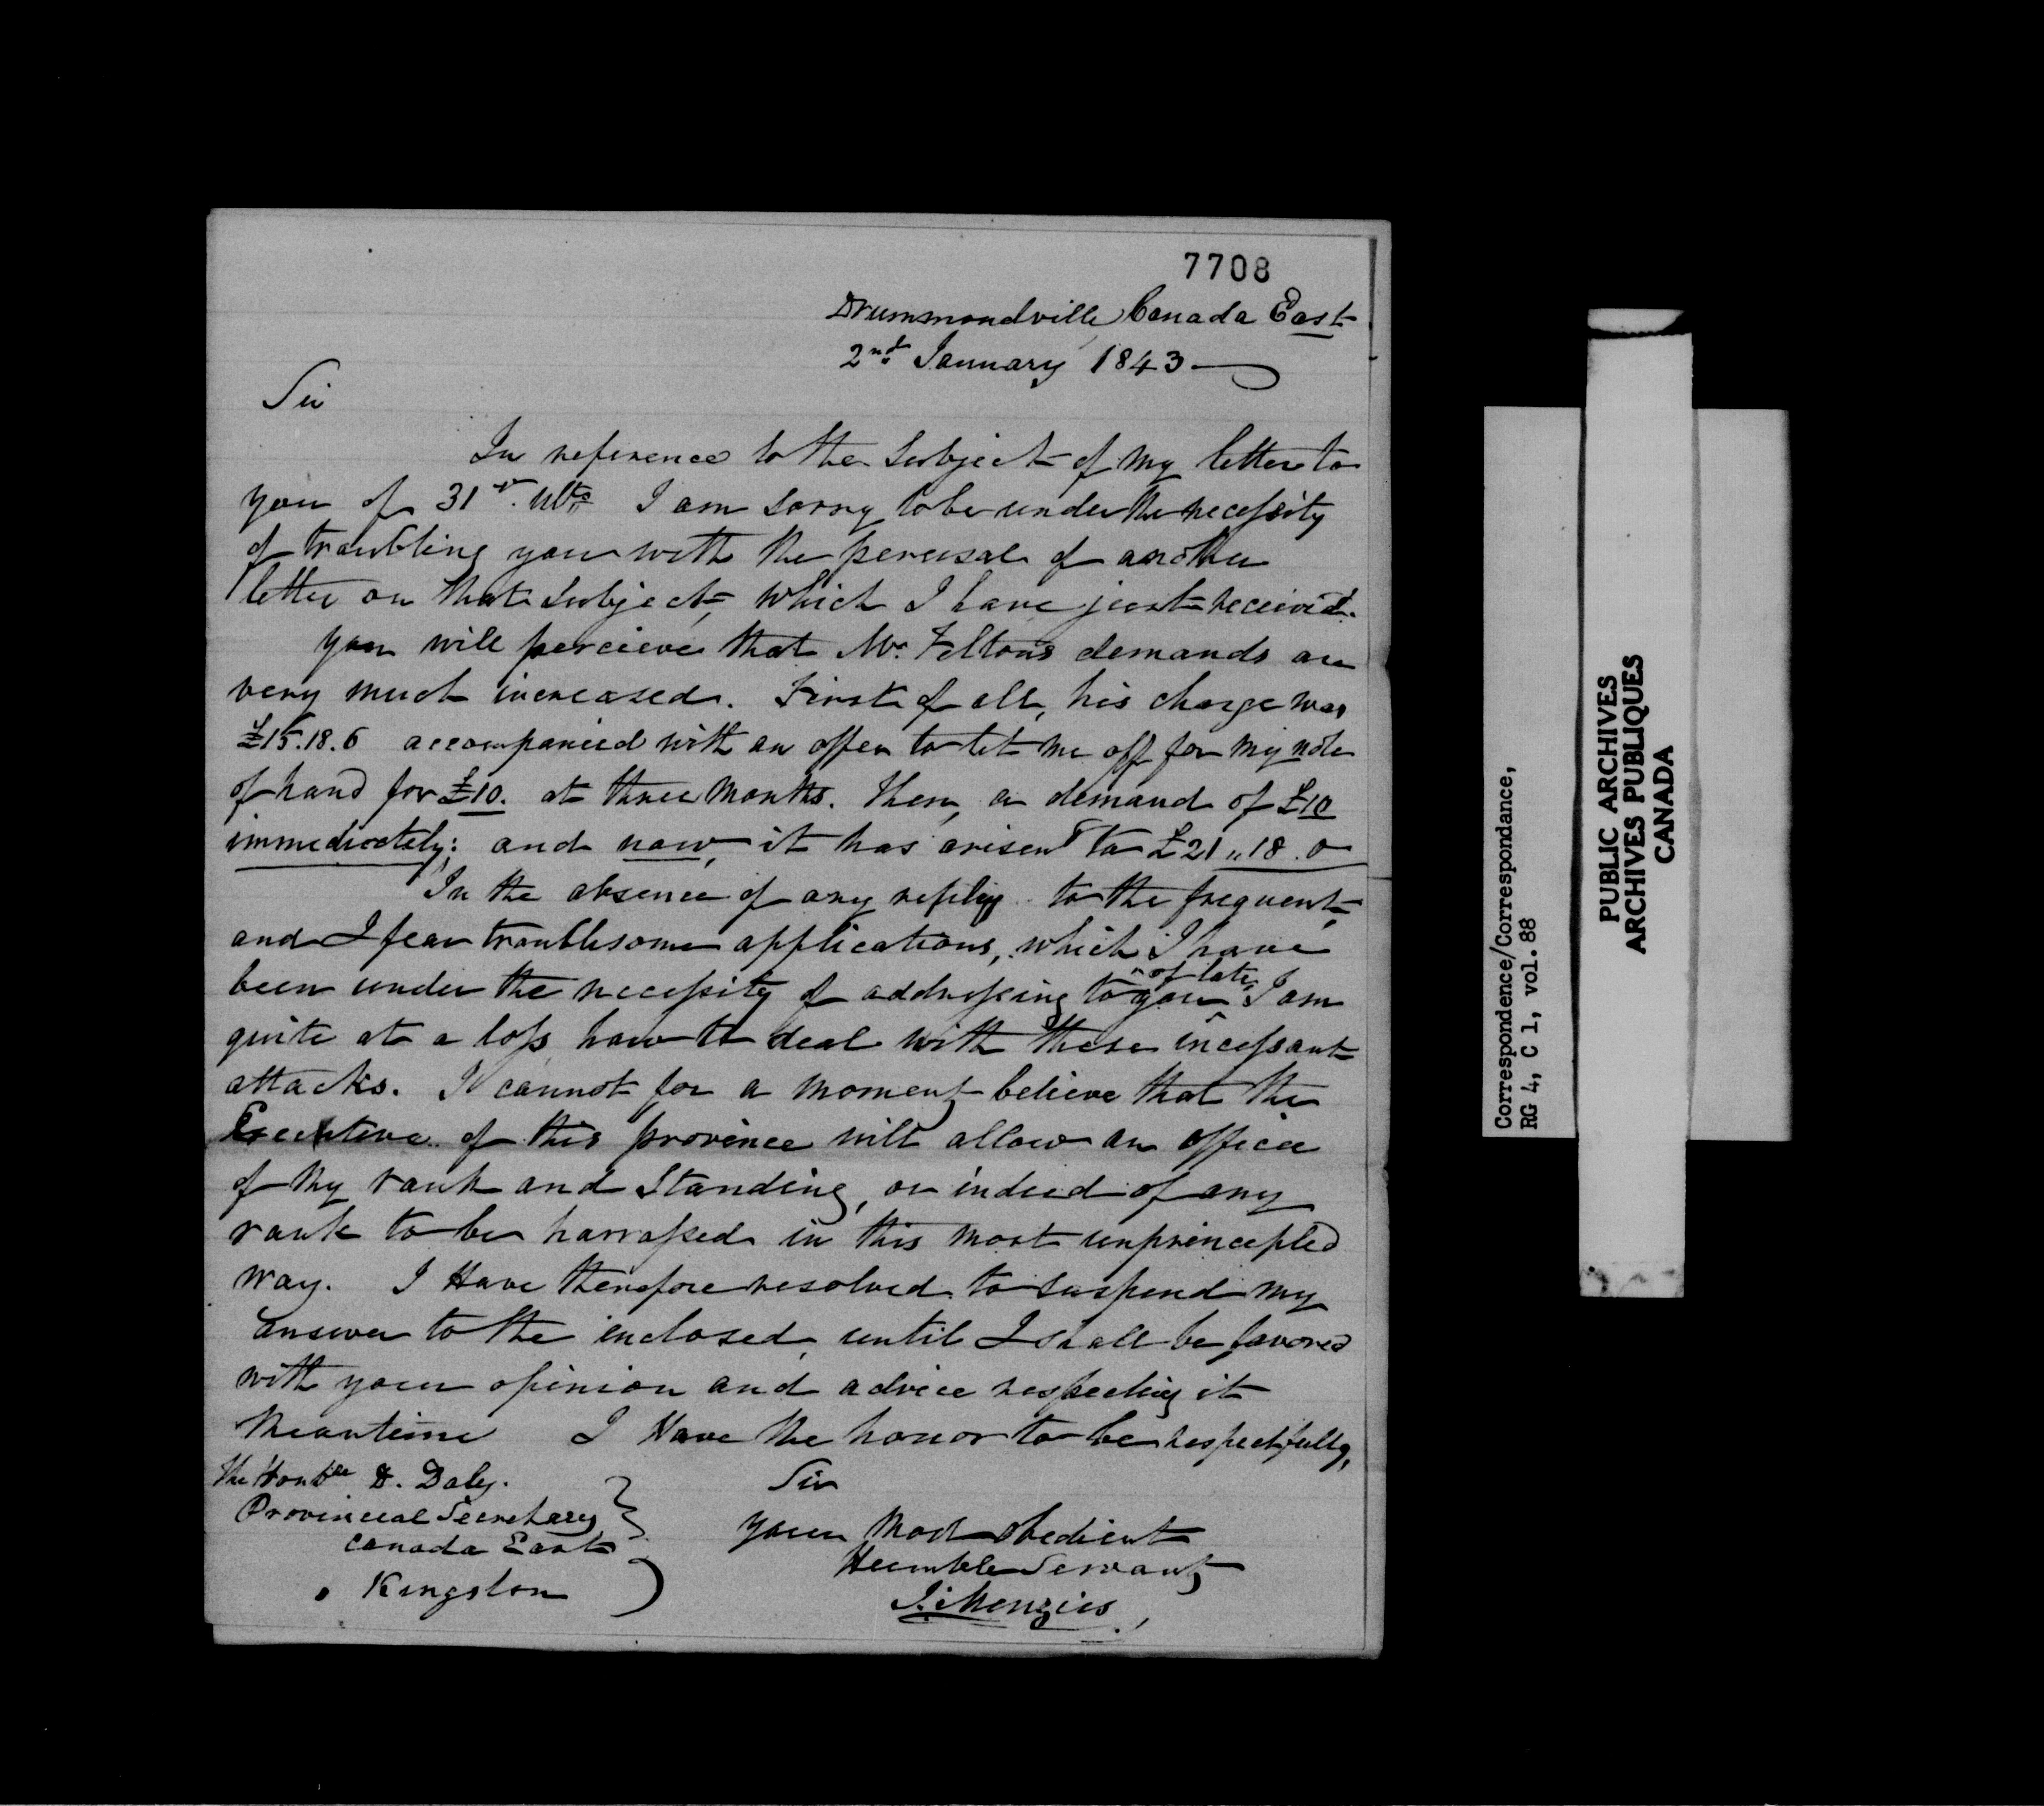 7708
Drummondville, Canada East
2nd January 1843
Sir
In reference to the Subject of my letter to
you of 31st. Ulto I am sorry to be under the necessity
of troubling you with the perusal of another
letter on that Subject, which I have just received.
You will percieve that Mr. Felton's demands are
very much increased. First of all, his charge was
£15.18.6 accompanied with an offer to let me off for my note
of hand for £10. at three months. Then, a demand of £10
immediately; and now, it has arisen to £21,,18.0
In the absence of any reply to the frequent,
and I fear troublesome applications, which I have
been under the necessity of addressing to you of late, I am
quite at a loss how to deal with these incessant
attacks. I cannot for a moment believe that the
Executive of this province will allow an officer
of my rank and Standing, or indeed of any
rank to be harrassed in this most unprincepled
way. I Have therefore resolved to suspend my
answer to the inclosed, until I shall be favored
with your opinion and advice respecting it
Meantime I Have the honor to be respectfully,
The Honble D. Daly.
Provincial Secretary
Canada East
Kingston
Sir
Your Most obedient
Humble Servant
J. Menzies
Correspondence/Correspondance,
RG 4, C 1, vol. 88
PUBLIC ARCHIVES
ARCHIVES PUBLIQUES
CANADA